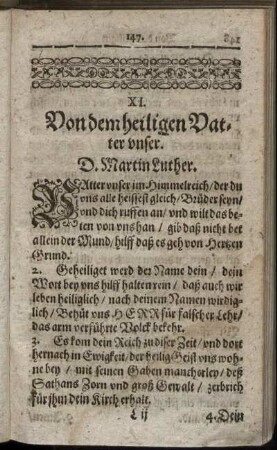 147.
XI.
Von dem heiligen Vat-
ter vnser.
D. Martin Luther.
VAtter vnser im Himmelreich / der du
vns alle heissest gleich / Brüder seyn /
vnd dich ruffen an / vnd wilt das be-
ten von vns han / gib daß nicht bet
allein der Mund / hilff daß es geh von Hertzen
Grund.
2. Geheiliget werd der Name dein / dein
Wort bey vns hilff halten rein / daß auch wir
leben heiliglich / nach deinem Namen wirdig-
lich / Behüt vns HERR für falscher Lehr /
das arm verführte Volck bekehr.
3. Es kom dein Reich zu diser Zeit / vnd dort
hernach in Ewigkeit / der heilig Geist vns woh-
ne bey / mit seinen Gaben mancherley / deß
Sathans Zorn vnd groß Gewalt / zerbrich
für jhm dein Kirch erhalt.
L ij 4. Dein